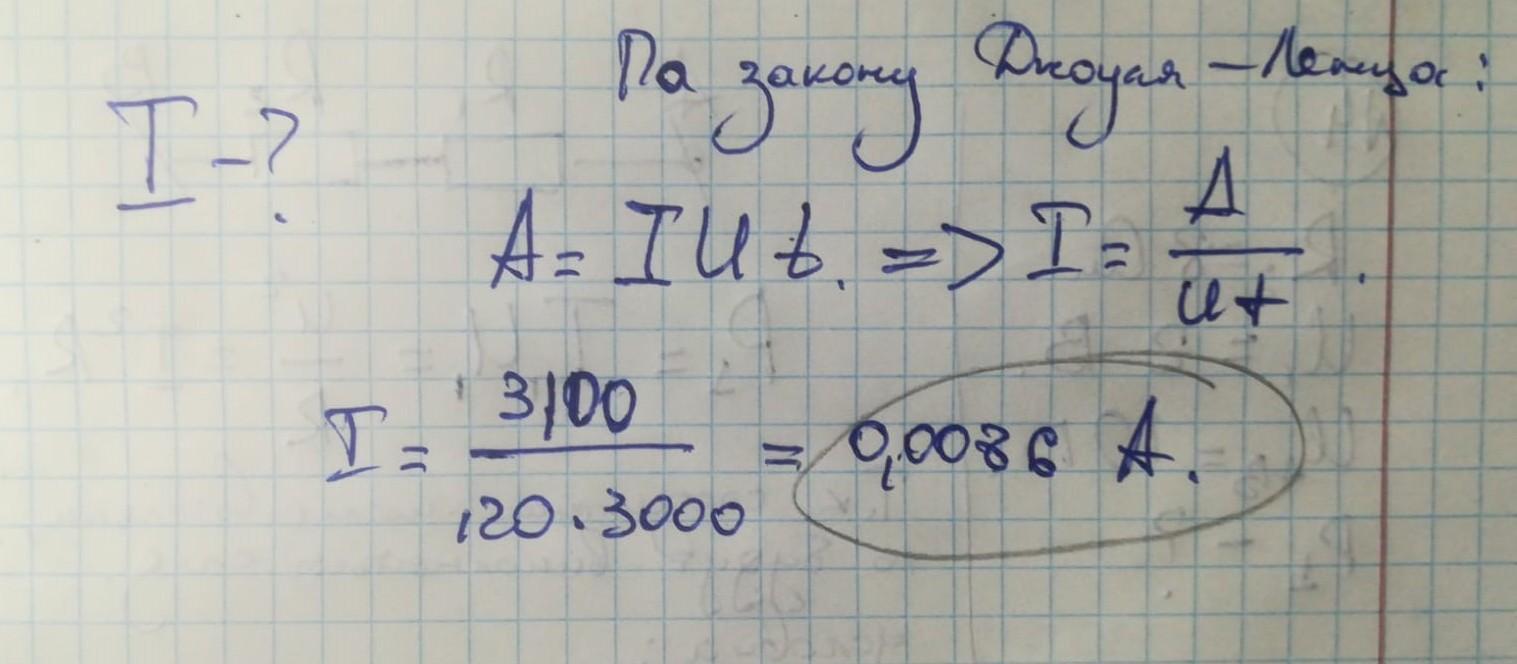 По закону Джоуля - Ленца:
I - ?
A = I U t. => I = A / Ut.
I = 3100 / 120 · 3000 = 0,0086 A.